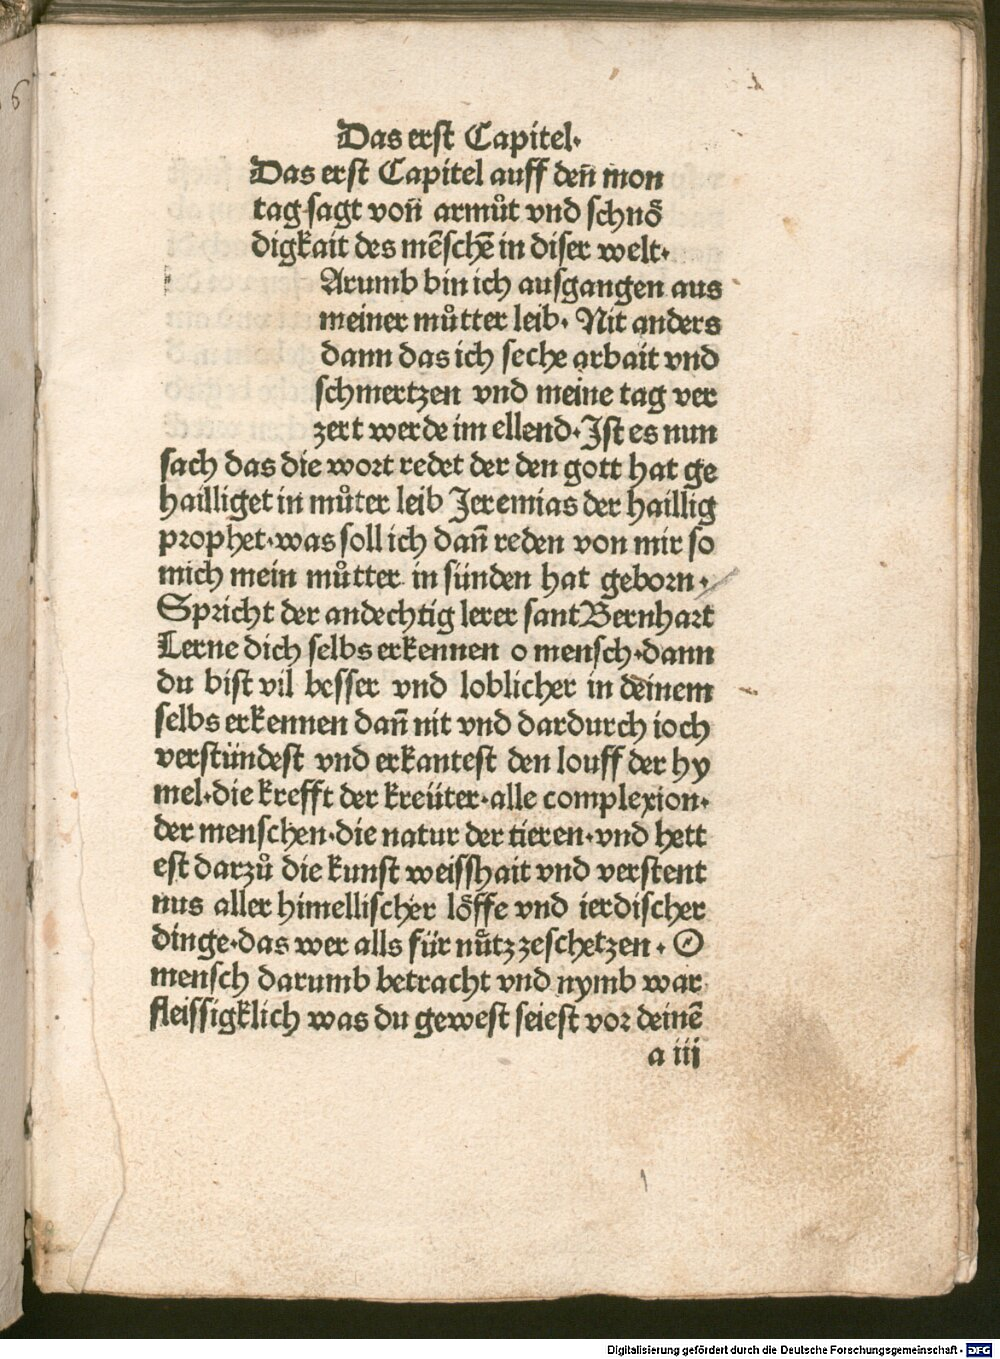 Das erst Capitel·
Das erst Capitel auff den̄ mon
tag·sagt von̄ armůt vnd schnȫ
digkait des mēschē in diser welt·
Arumb bin ich ausgangen aus
meiner můtter leib· Nit anders
dann das ich seche arbait vnd
schmertzen vnd meine tag ver
zert werde im ellend·Jst es nun
sach das die wort redet der den gott hat ge
hailliget in můter leib Jeremias der haillig
prophet·was soll ich dan̄ reden von mir so
mich mein můtter in sünden hat geborn·
Spricht der andechtig lerer sant Bernhart
Lerne dich selbs erkennen o mensch·dann
du bist vil besser vnd loblicher in deinem
selbs erkennen dan̄ nit vnd dardurch ioch
verstündest vnd erkantest den louff der hy
mel·die krefft der kreüter·alle complexion·
der menschen·die natur der tieren·vnd hett
est darzů die kunst weisshait vnd verstent
nus aller himellischer lȫffe vnd ierdischer
dinge·das wer alls für nůtz zeschetzen· O
mensch darumb betracht vnd nymb war
fleissigklich was du gewest seiest vor deinē
a iii
6
Digitalisierung gefördert durch die Deutsche Forschungsgemeinschaft - DFG